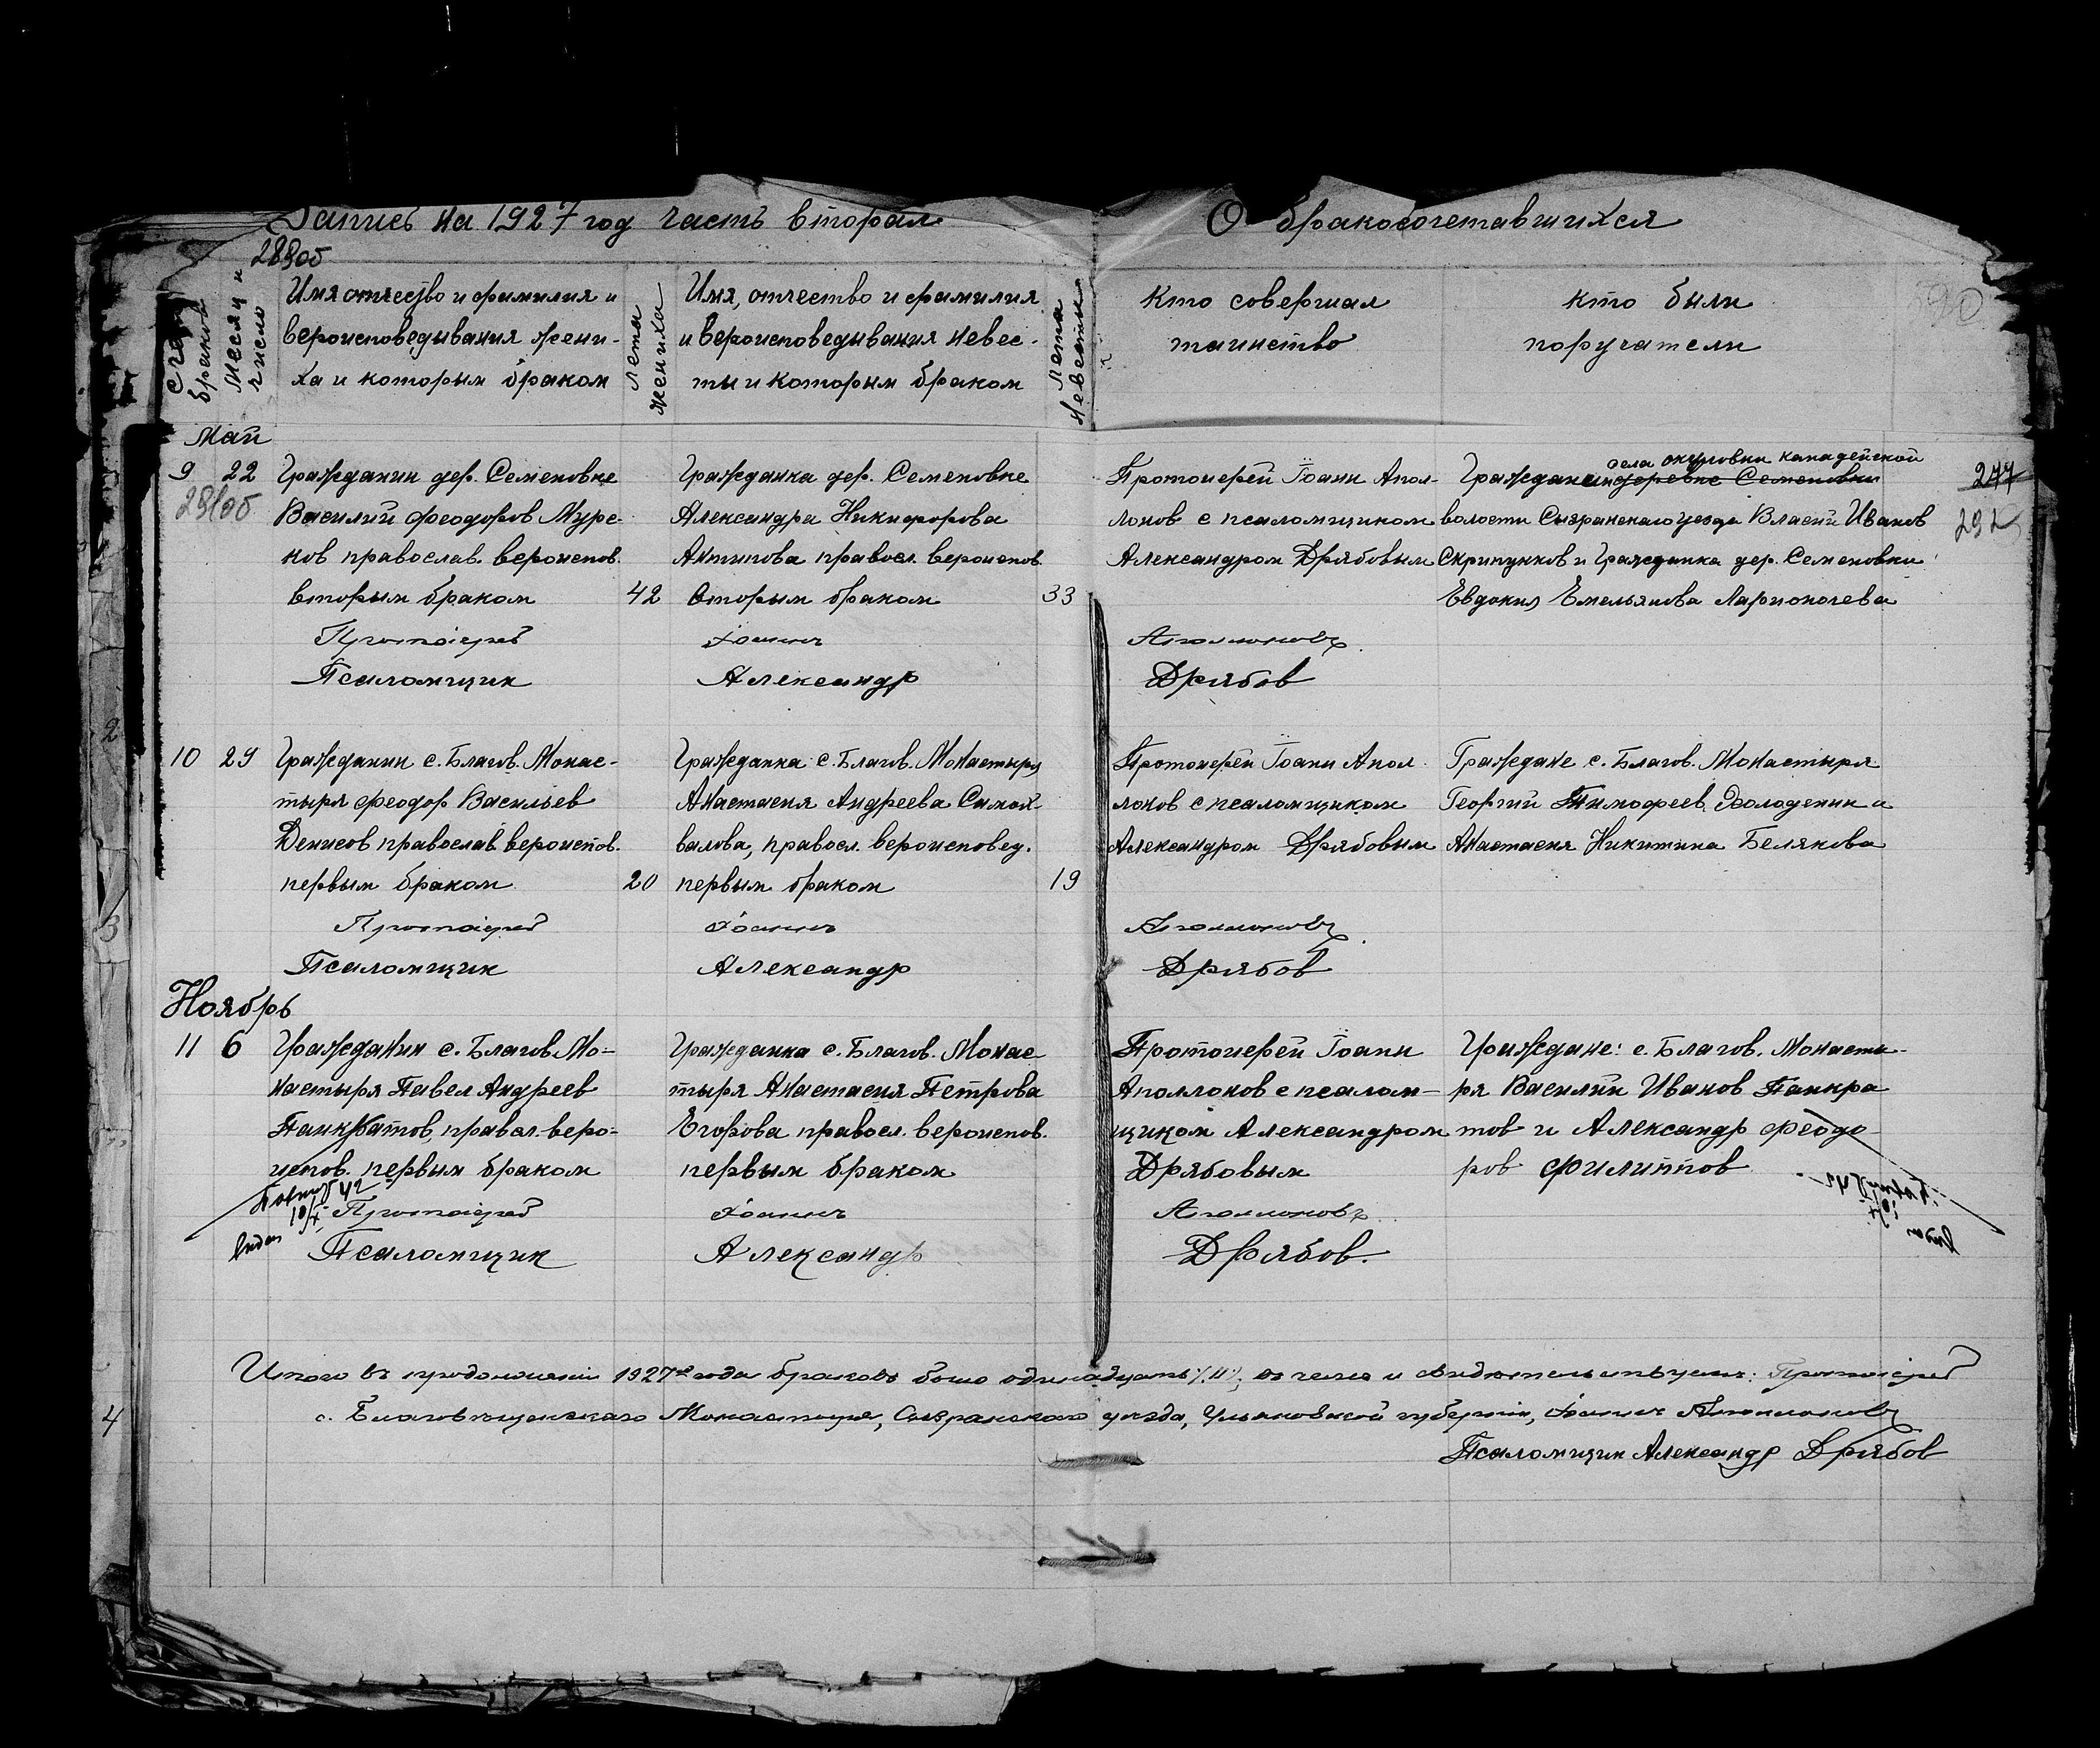 Запись на 1927 год часть вторая
О бракосочетавшихся
288об
счет браков
Месяц и число
Имя отчество и фамилия и
вероисповедывания жени-
ха и которым браком
лета жениха
Имя, отчество и фамилия
и вероисповедывания невес-
ты и которым браком
лета невесты
Кто совершал
таинство
Кто были
поручатели
Май
9 22
Гражданин дер. Семеновке
Василий Феодоров Муре-
нов православ. вероиспов.
вторым браком 42
Гражданка дер. Семеновке
Александра Никифорова
Антипова правосл. вероиспов.
вторым браком 33
Протоиерей Іоанн Апол-
лонов с псаломщиком
Александром Дрябовым
села окуловки канадейской
Гражданин деревне Семеновки
волости Сызранского уезда Власий Иванов
Скрипунков и Гражданка дер. Семеновки
Евдокия Емельянова Ларионочева
277
Протоіерей Іоаннъ Аполлоновъ
Псаломщик Александр Дрябов
10 29
Гражданин с. Благов. Монас-
тыря Феодор Васильев
Денисов православ. вероиспов.
первым браком 20
Гражданка с. Благов. Монастыря
Анастасия Андреева Самох-
валова, правосл. вероисповед.
первым браком 19
Протоиерей Іоанн Апол-
лонов с псаломщиком
Александром Дрябовым
Граждане с. Благов. Монастыря
Георгий Тимофеев Холоденин и
Анастасия Никитина Белякова
Протоіерей Іоаннъ Аполлоновъ
Псаломщик Александр Дрябов
Ноябрь
11 6
Гражданин с. Благов. Мо-
настыря Павел Андреев
Панкратов, правосл. веро-
испов. первым браком
Гражданка с. Благов. Монас
тыря Анастасия Петрова
Егорова правосл. вероиспов.
первым браком
Протоиерей Іоанн
Аполлонов с псалом-
щиком Александром
Дрябовым
Граждане: с. Благов. Монасты-
ря Василий Иванов Панкра
тов и Александр Феодо-
ров Филиппов
Протоіерей Іоаннъ Аполлоновъ
Псаломщик Александр Дрябов.
Итого въ продолженіи 1927го года браковъ было одинадцать /.11./, въ чемъ и свидетельствуемъ: Протоіерей
с. Благовещенскаго Монастыря, Сызранскаго уезда, Ульяновской губерніи, Іоаннъ Аполлоновъ
Псаломщик Александр Дрябов